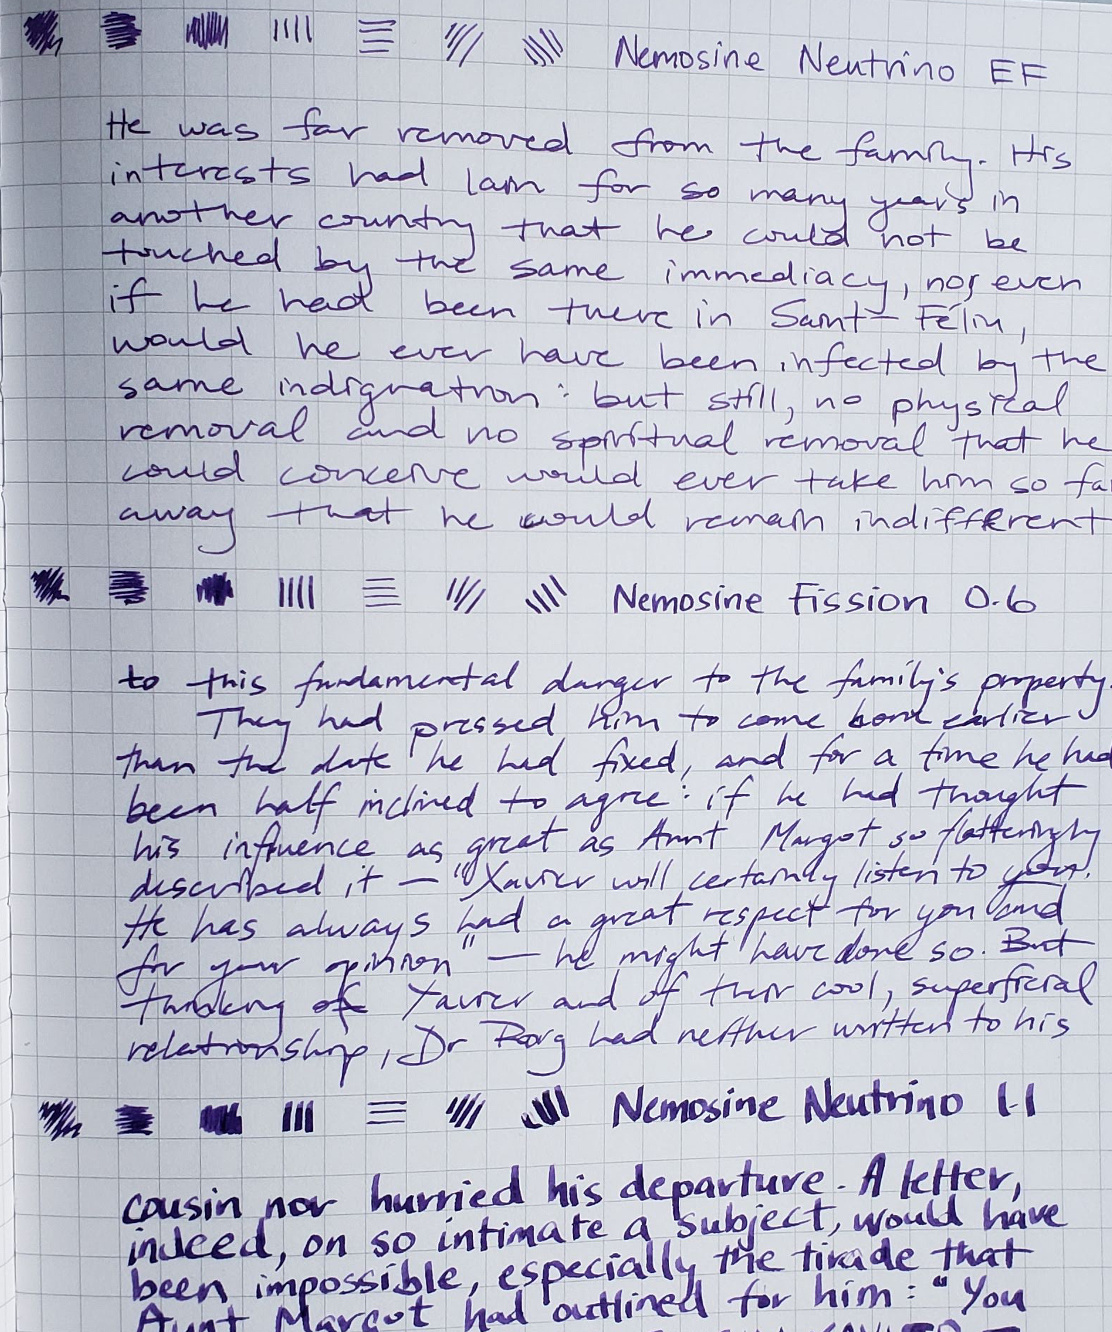 Nemosine Neutrino EF
He was far removed from the family. His
interests had lain for so many years in
another country that he could not be
touched by the same immediacy, nor even
if he had been there in Saint-Félin,
would he ever have been infected by the
same indignation: but still, no physical
removal and no spiritual removal that he
could conceive would ever take him so fa
away that he would remain indifferent
Nemosine Fission 0.6
to this fundamental danger to the family's property.
They had pressed him to come earlier
than the date he had fixed, and for a time he had
been half inclined to agree: if he had thought
his influence as great as Aunt Margot so flatteringly
described it — "Xavier will certainly listen to you.
He has always had a great respect for you and
for your opinion" — he might have done so. But
thinking of Xavier and of their cool, superficial
relationship, Dr had neither written to his
Nemosine Neutrino 1.1
cousin nor hurried his departure. A letter,
indeed, on so intimate a subject, would have
been impossible, especially the tirade that
Aunt Margot had outlined for him: "You